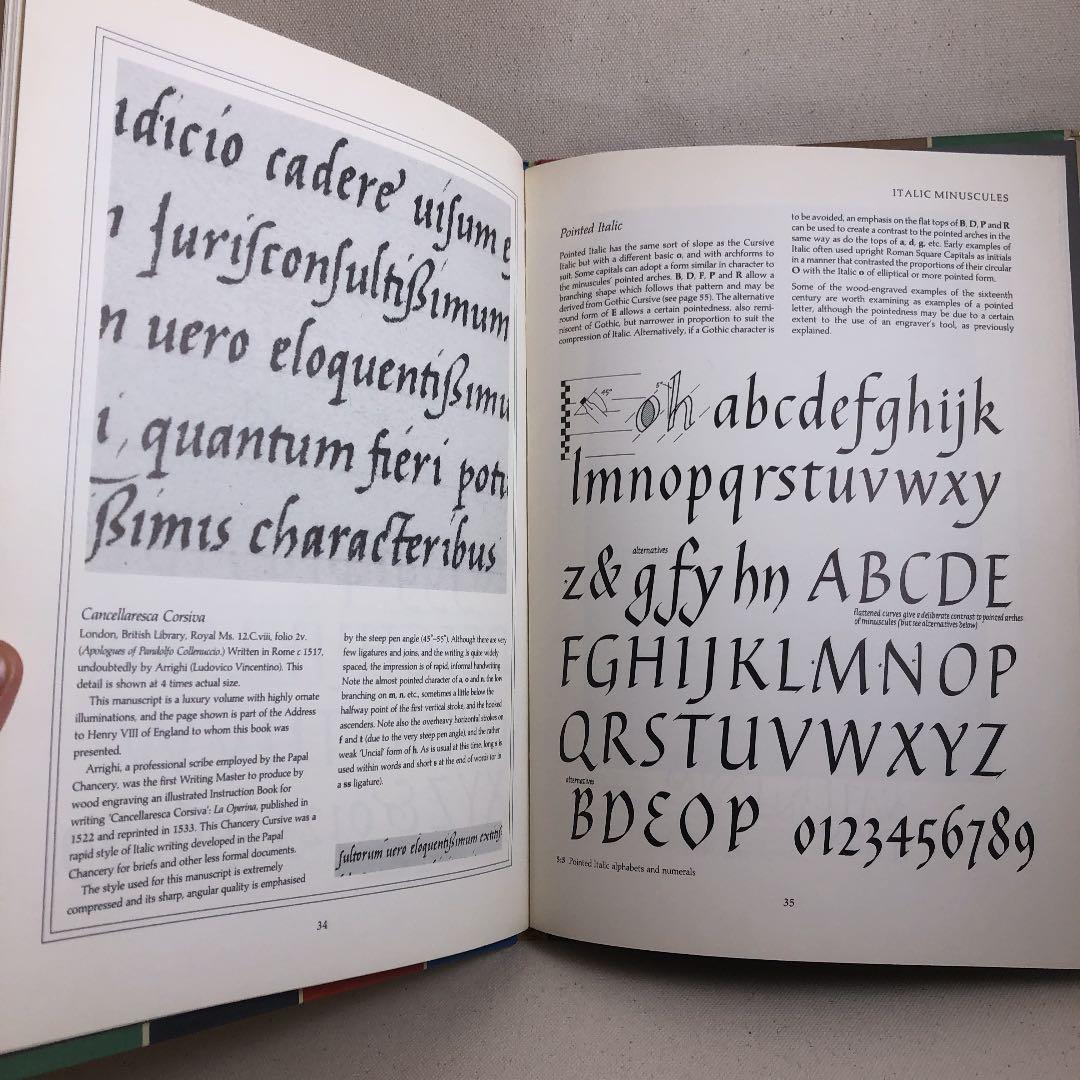 ıdicio cadere' uiſum e
Juriſconſultißimum
n uero eloquentißimu
i, quantum fieri potu
ßimis characteribus
Cancellaresca Corsiva
London, British Library, Royal Ms. 12.C.viii, folio 2v.
(Apologues of Pandolfo Collenuccio.) Written in Rome c 1517,
undoubtedly by Arrighi (Ludovico Vincentino). This
detail is shown at 4 times actual size.
This manuscript is a luxury volume with highly ornate
illuminations, and the page shown is part of the Address
to Henry VIII of England to whom this book was
presented.
Arrighi, a professional scribe employed by the Papal
Chancery, was the first Writing Master to produce by
wood engraving an illustrated Instruction Book for
writing 'Cancellaresca Corsiva': La Operina, published in
1522 and reprinted in 1533. This Chancery Cursive was a
rapid style of Italic writing developed in the Papal
Chancery for briefs and other less formal documents.
The style used for this manuscript is extremely
compressed and its sharp, angular quality is emphasised
by the steep pen angle (45°–55°). Although there are very
few ligatures and joins, and the writing is quite widely
spaced, the impression is of rapid, informal handwriting.
Note the almost pointed character of a, o and n, the low
branching on m, n, etc., sometimes a little below the
halfway point of the first vertical stroke, and the hooked
ascenders. Note also the overheavy horizontal strokes on
f and t (due to the very steep pen angle), and the rather
weak 'Uncial' form of h. As is usual at this time, long s is
used within words and short s at the end of words (or in
a ss ligature).
ſultorum uero eloquentißimum extitiſ
34
ITALIC MINUSCULES
Pointed Italic
Pointed Italic has the same sort of slope as the Cursive
Italic but with a different basic o, and with archforms to
suit. Some capitals can adopt a form similar in character to
the minuscules' pointed arches. B, D, F, P and R allow a
branching shape which follows that pattern and may be
derived from Gothic Cursive (see page 55). The alternative
round form of E allows a certain pointedness, also remi-
niscent of Gothic, but narrower in proportion to suit the
compression of Italic. Alternatively, if a Gothic character is
to be avoided, an emphasis on the flat tops of B, D, P and R
can be used to create a contrast to the pointed arches in the
same way as do the tops of a, d, g, etc. Early examples of
Italic often used upright Roman Square Capitals as initials
in a manner that contrasted the proportions of their circular
O with the Italic o of elliptical or more pointed form.
Some of the wood-engraved examples of the sixteenth
century are worth examining as examples of a pointed
letter, although the pointedness may be due to a certain
extent to the use of an engraver's tool, as previously
explained.
45° 5° oh abcdefghijk
lmnopqrstuvwxy
alternatives
z& gfy hn ABCDE
flattened curves give a deliberate contrast to pointed arches
of minuscules (but see alternatives below)
FGHIJKL·M·N·OP
QRSTUVWXYZ
alternatives
BDEOP 0123456789
5:3 Pointed Italic alphabets and numerals
35